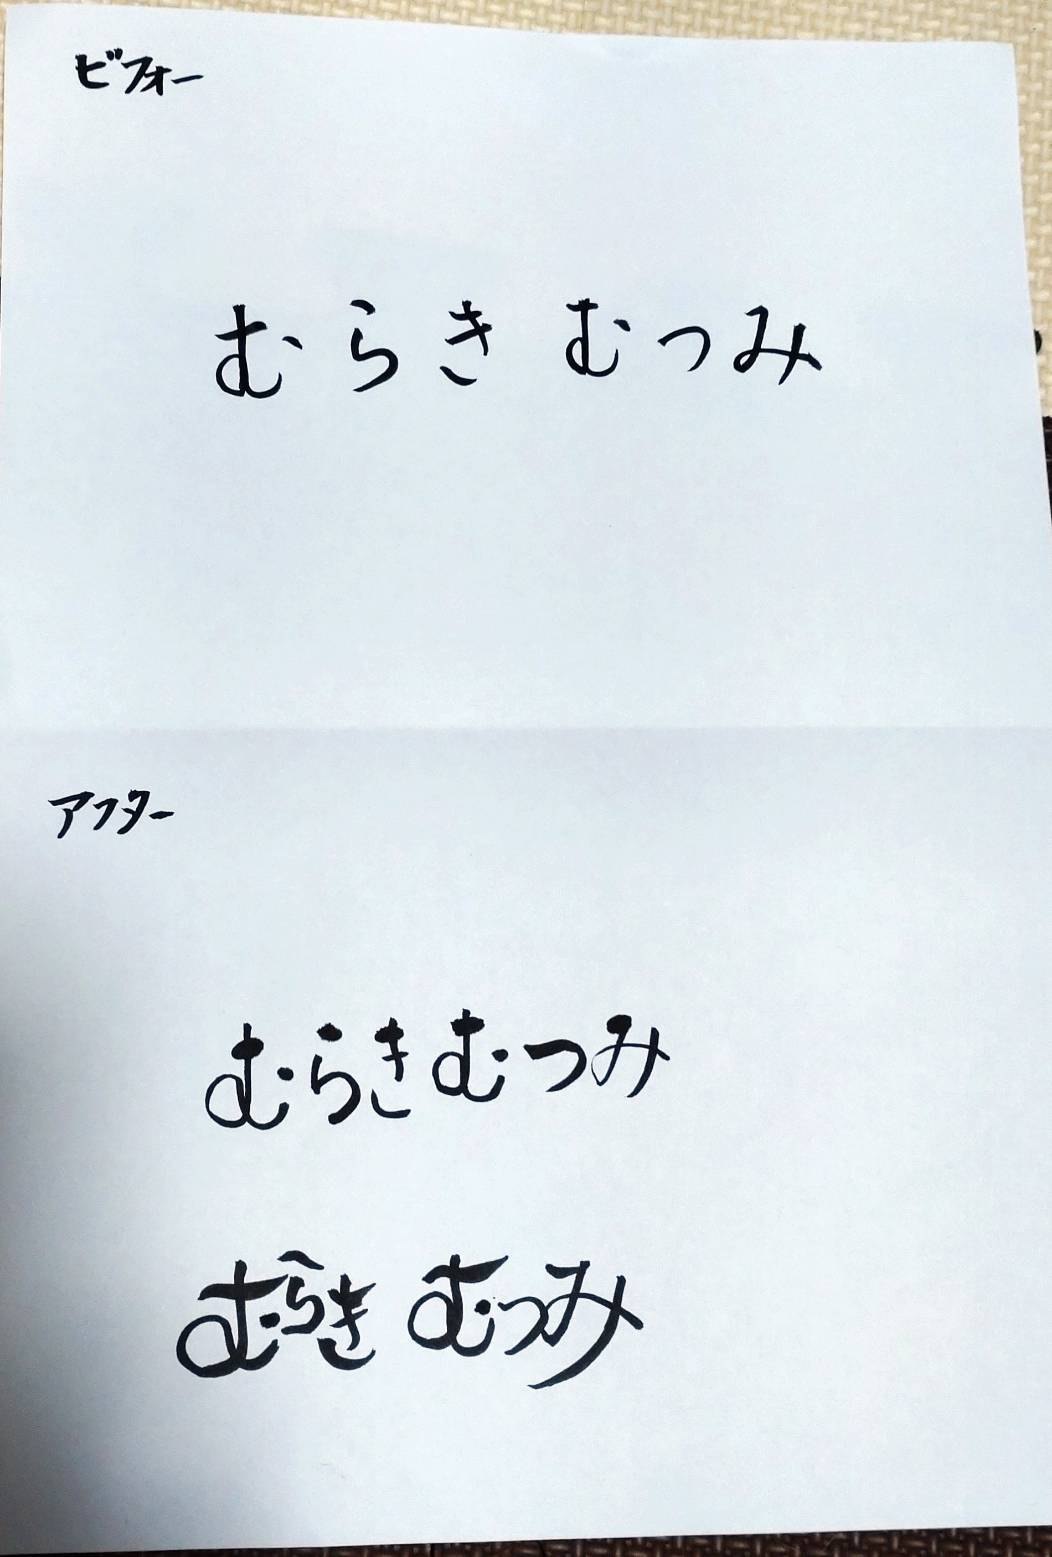 ビフォー
むらき むつみ
アフター
むらきむつみ
むらき むつみ